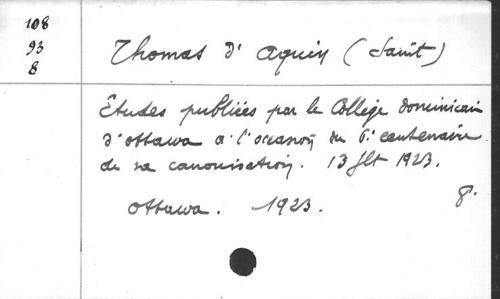 108
93
8
Thomas d' Aquin (Saint)
Etudes publiées par le Collège dominicain
d'Ottawa a l'occasion du 6e centenaire
de sa canonisation. 13 Jlt 1923.
Ottawa. 1923. 8.